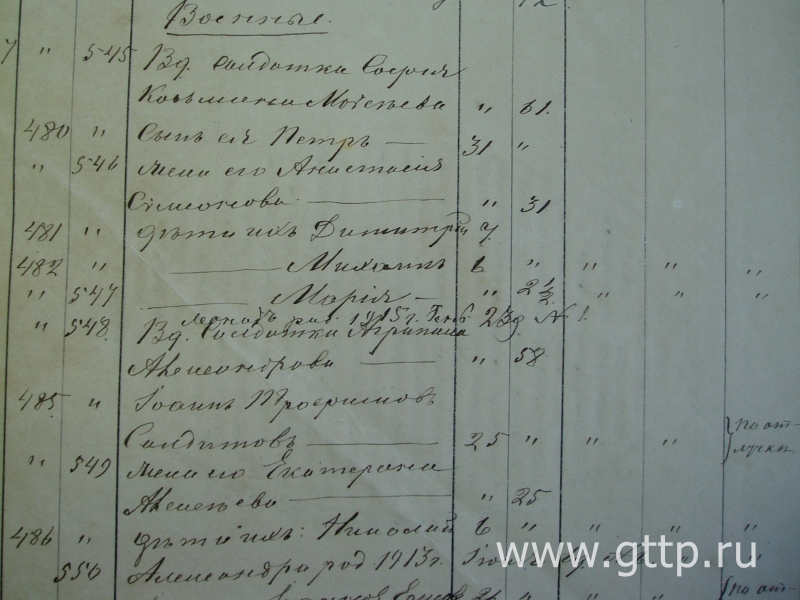 Военные.
" 545 Вд. Солдатка Софія
Козьмина Мотеьева " 61.
480 " Сынъ ея Петръ — 31 "
" 546 жена его Анастасія
Симеонова — " 31
481 " дѣти ихъ Димитрій 7.
482 " — Михаилъ 6 " " "
" 547 — Марія — " 2½ " " "
род. 1915 г.
" 548. Вд. Солдатка Агрипина
Александрова — " 58
485. " Іоаннъ Трофимовъ
Солдатовъ — 25 " " " по от-
лучкѣ
" 549 жена его Екатерина
Алексѣева — " 25
486 " дѣти ихъ: Николай 6 " " " "
550 Александра род 1913 г.
по от-
www.gttp.ru